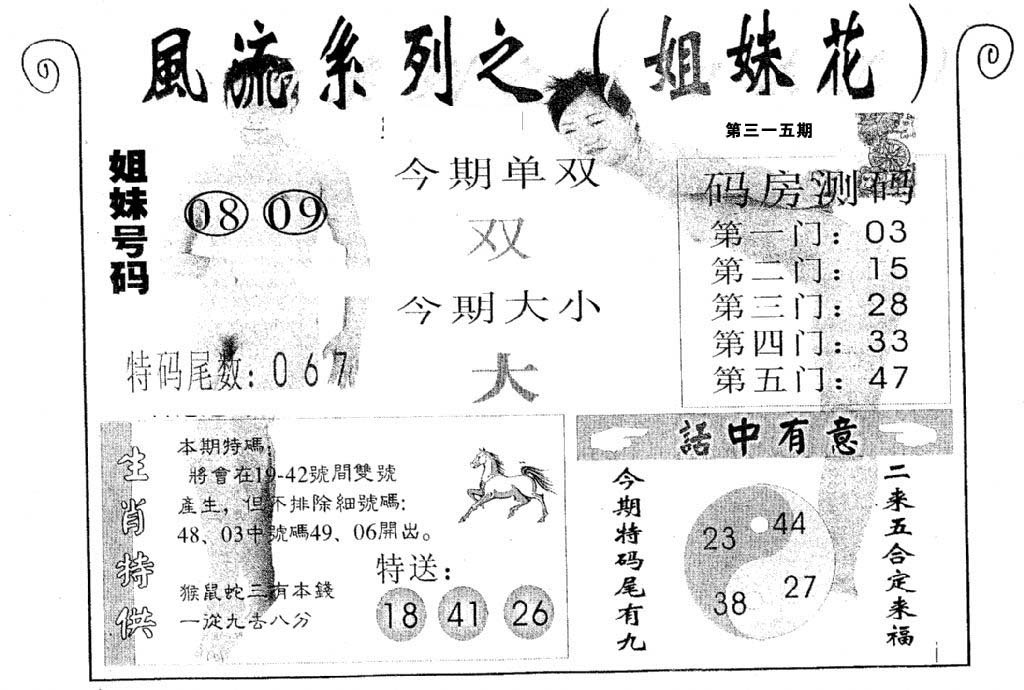 風流系列之（姐妹花）
第三一五期
姐妹号码
08 09
特码尾数：067
今期单双
双
今期大小
大
码房测码
第一门：03
第二门：15
第三门：28
第四门：33
第五门：47
生肖特供
本期特碼：
將會在19-42號間雙號
產生，但不排除細號碼；
48、03中號碼49、06開出。
猴鼠蛇三有本錢
一從九去八分
特送：
18 41 26
話中有意
今期特码尾有九
23 44
38 27
二来五合定来福